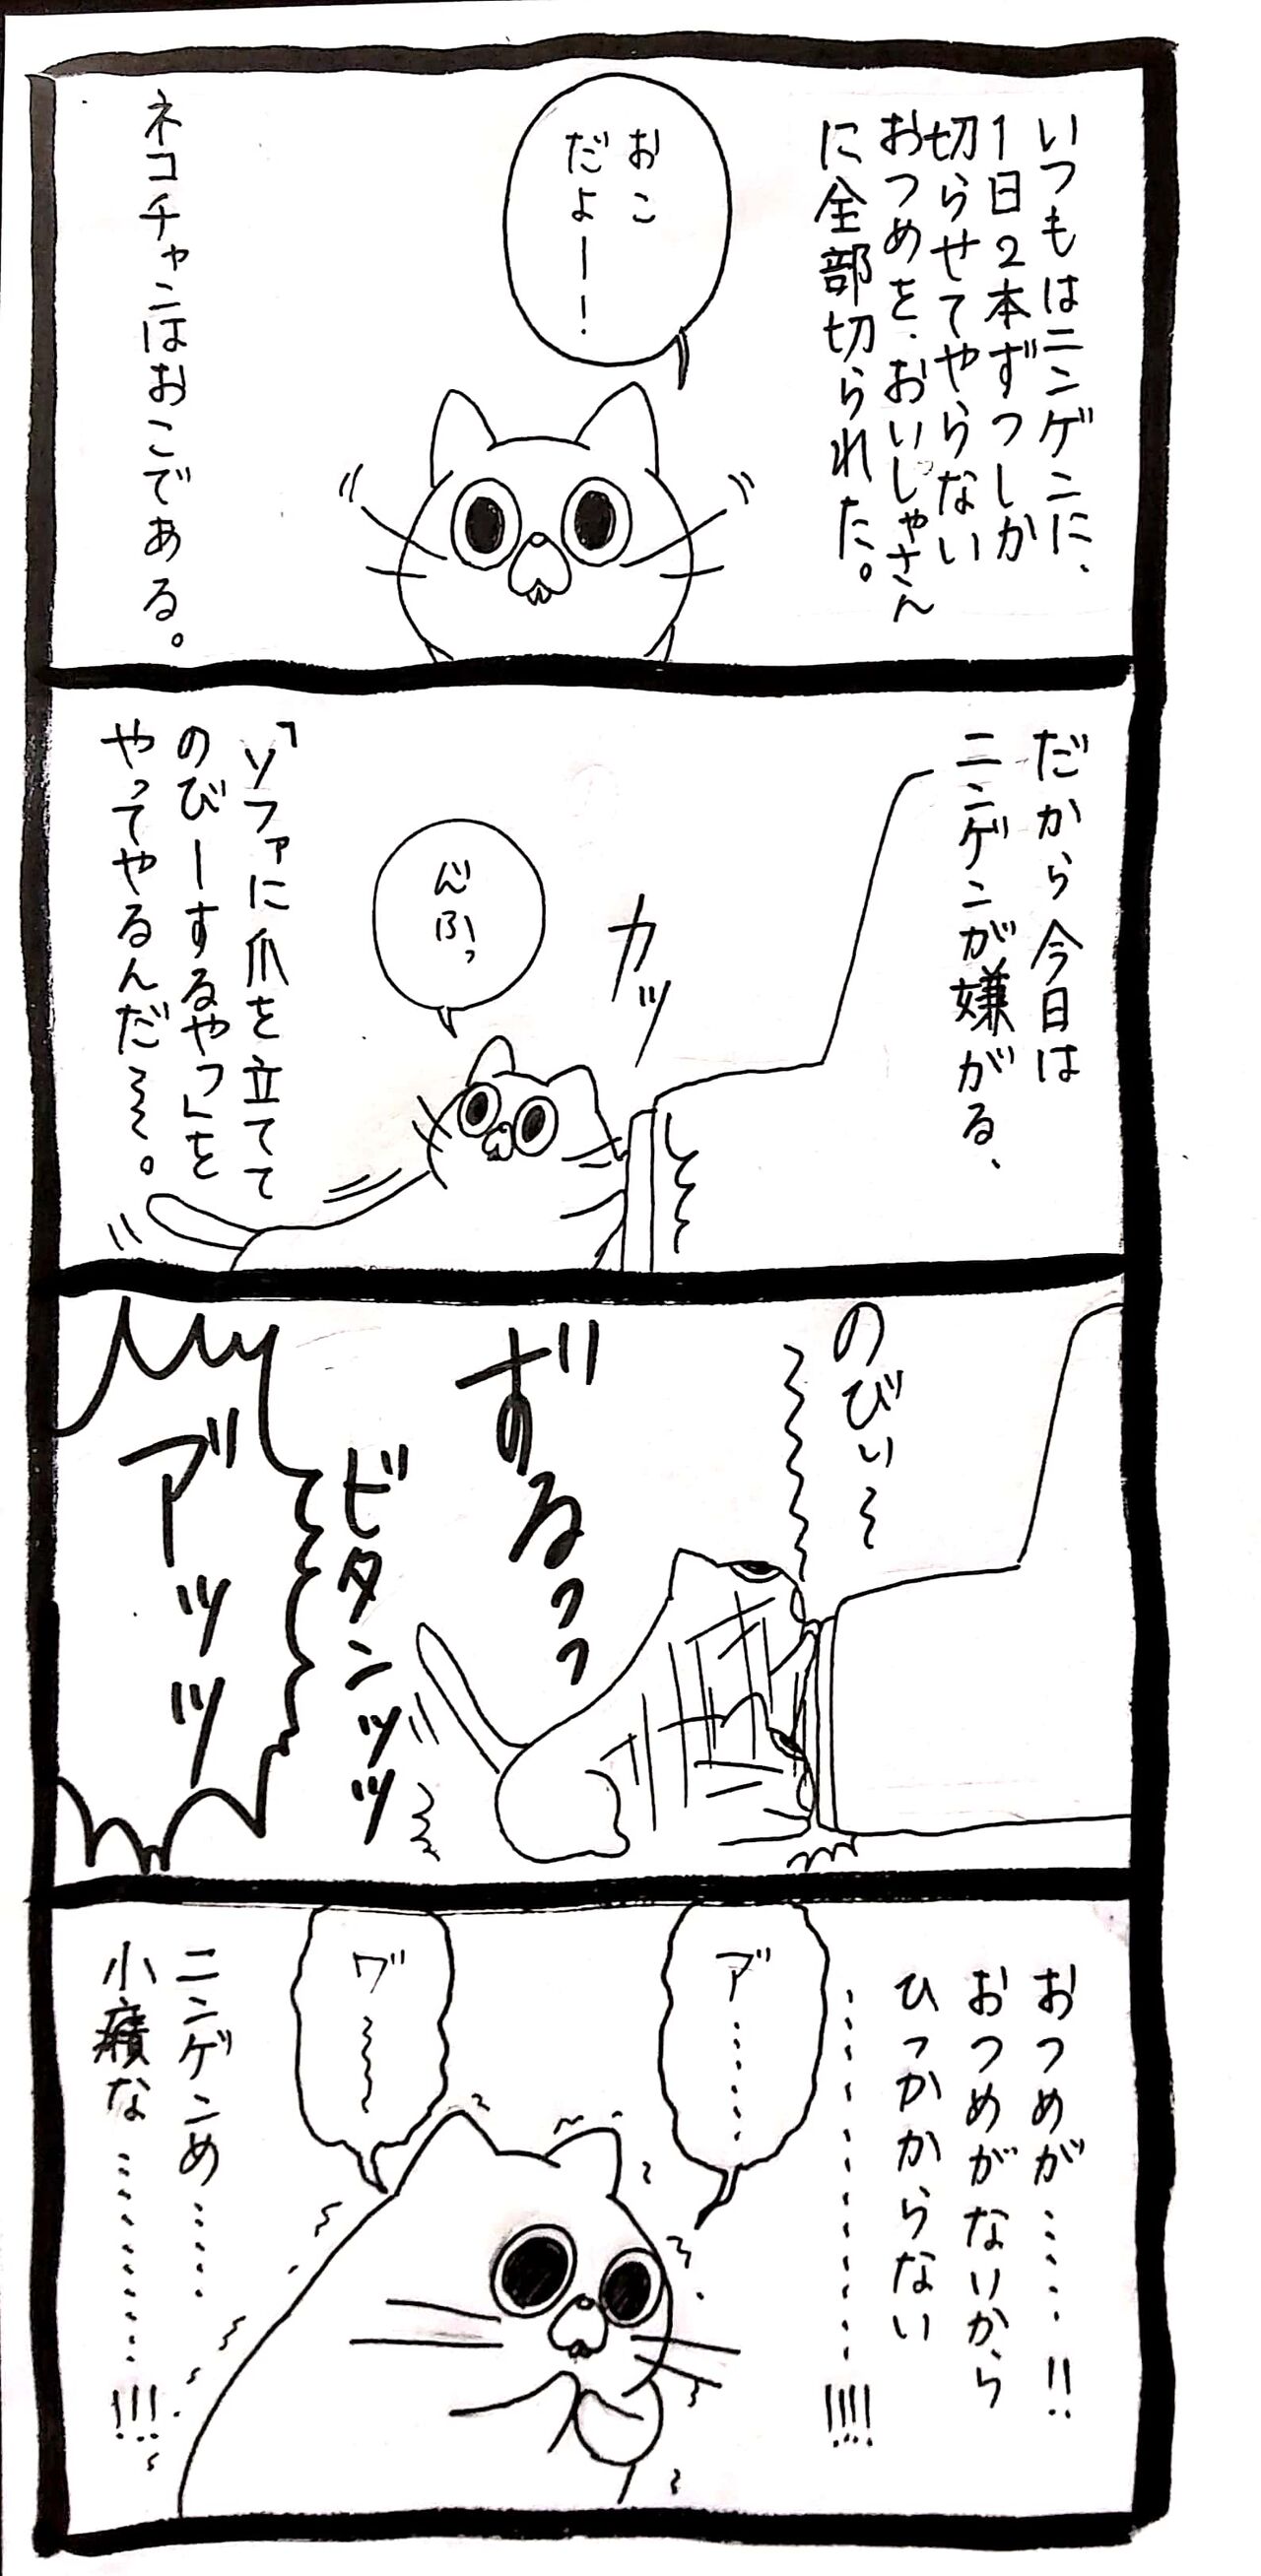 いつもはニンゲンに、
1日2本ずつしか
切らせてやらない
おつめを、おいしゃさん
に全部切られた。
おこ
だよー!
ネコチャンはおこである。
だから今日は
ニンゲンが嫌がる、
カッ
「ソファに爪を立てて
のびーするやつ」を
やってやるんだ〜〜。
のびぃ〜
ずるっっ
ビタンッッ
ア゛ッッ
おつめが……!!
おつめがないから
ひっかからない
…………!!!!
ア゛……
ワ゛〜〜
ニンゲンめ……
小癪な…………!!!